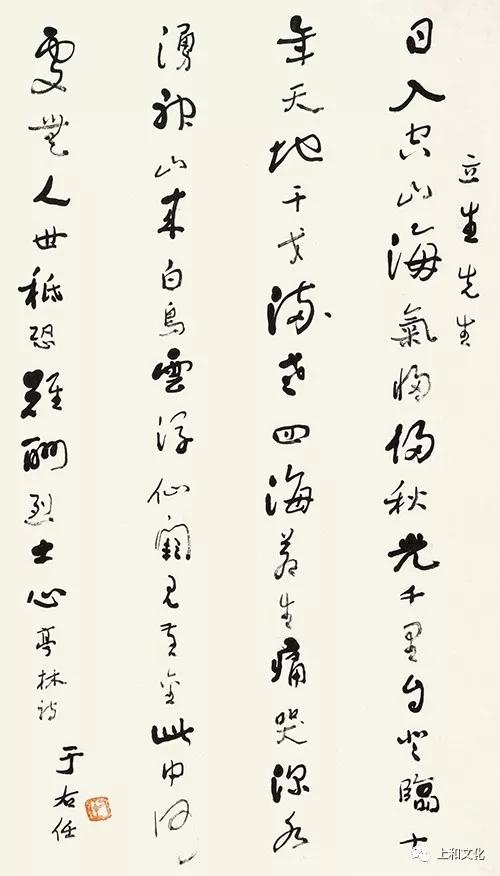 立生先生
日入空山海氣侵侵秋光千里自登臨十
年天地干戈滿老四海蒼生痛哭深水
湧神山來白鳥雲浮仙闕見黃金此中何
處無人世祗恐難酬烈士心亭林詩
于右任
上和文化